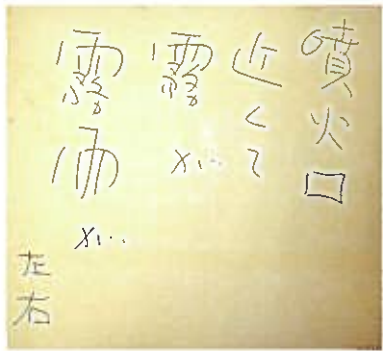 噴火口
近くて
霧が
霧雨が
左右